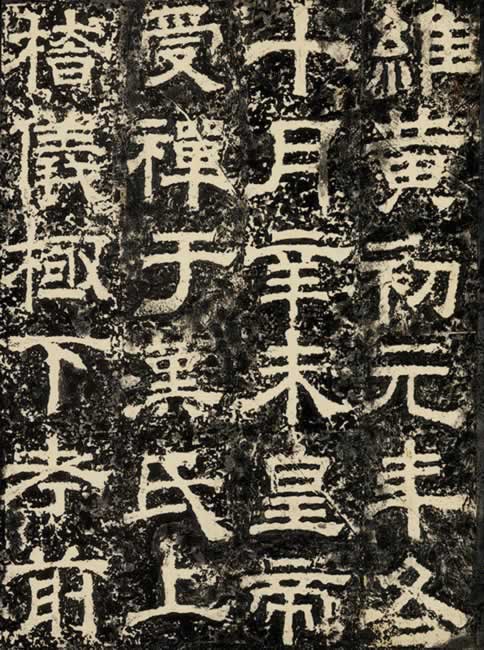 維黃初元年冬
十月辛未皇帝
受禪于漢氏上
稽儀極下考前